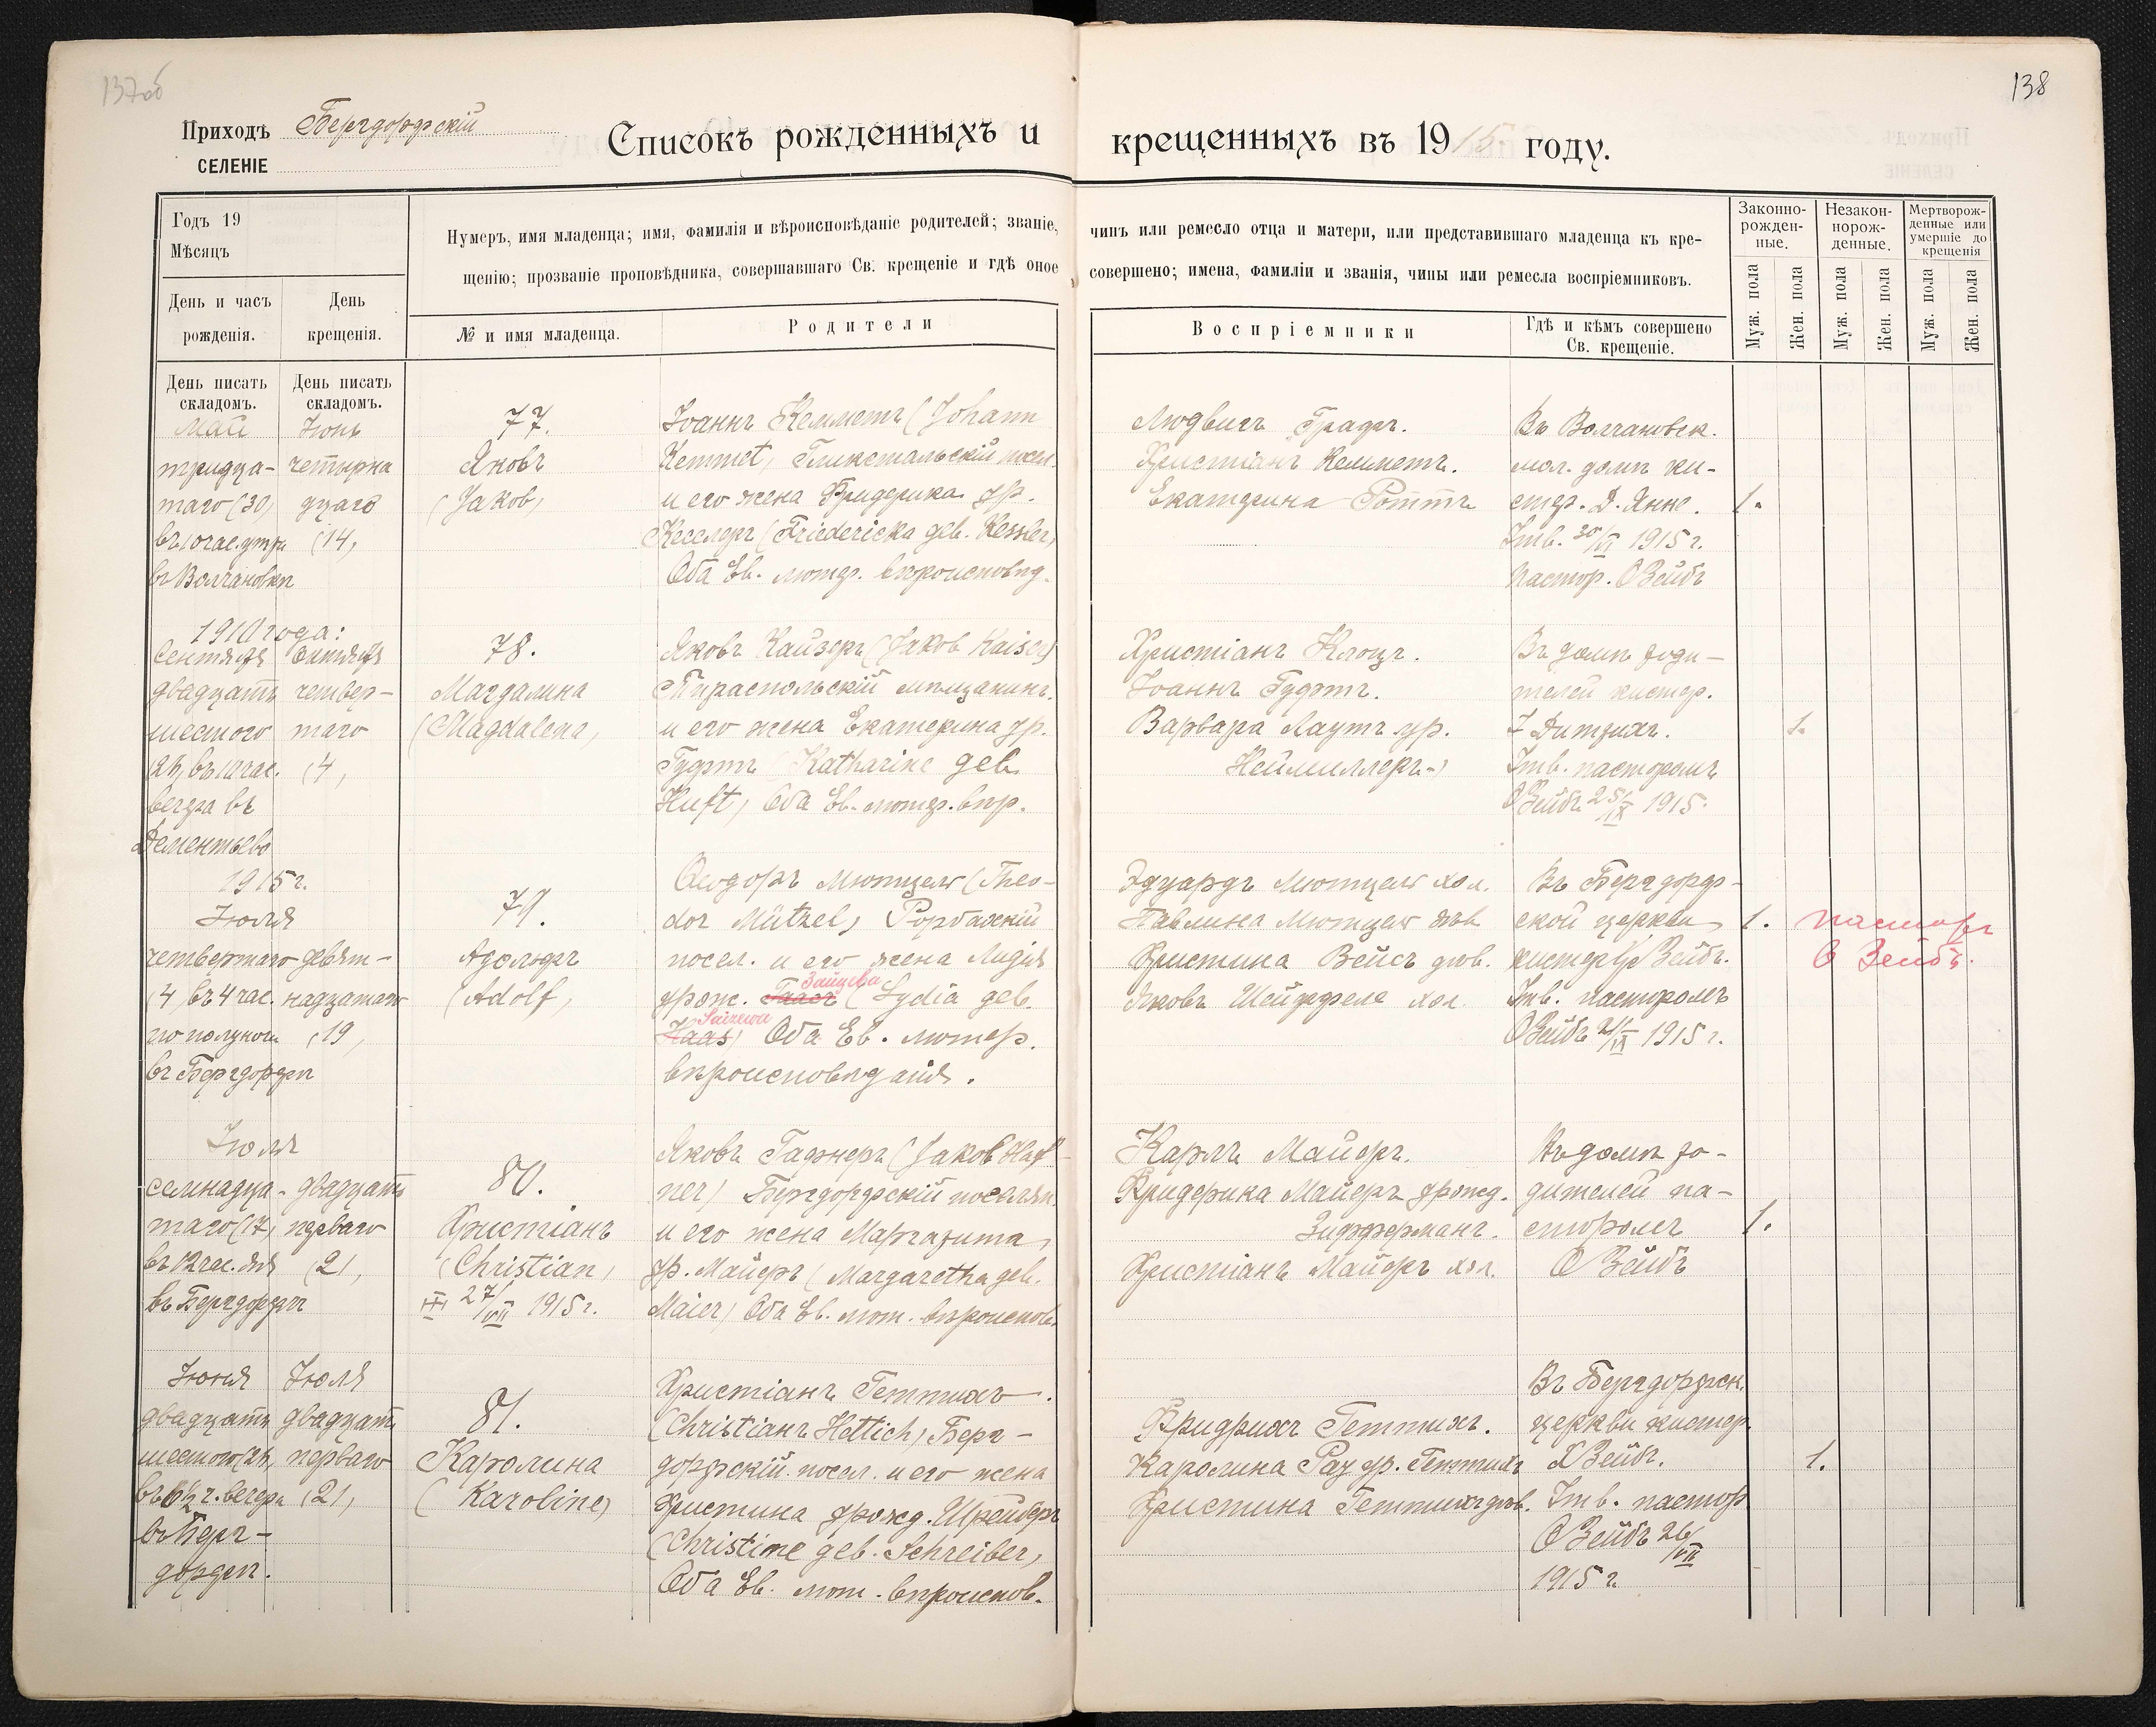 137об
138
Приходъ Бергдорфскій
СЕЛЕНІЕ
Списокъ рожденныхъ и крещенныхъ въ 1915 году.
Годъ 19
Мѣсяцъ
День и часъ рожденія.
День крещенія.
Нумеръ, имя младенца; имя, фамилія и вѣроисповѣданіе родителей; званіе, чинъ или ремесло отца и матери, или представившаго младенца къ кре-
щенію; прозваніе проповѣдника, совершавшаго Св. крещеніе и гдѣ оное совершено; имена, фамиліи и званія, чины или ремесла воспріемниковъ.
№ и имя младенца.
Родители
Воспріемники
Гдѣ и кѣмъ совершено
Св. крещеніе.
Законно-
рожден-
ные.
Незакон-
норож-
денные.
Мертворож-
денные или
умершіе до
крещенія
Муж. пола
Жен. пола
Муж. пола
Жен. пола
Муж. пола
Жен. пола
День писать
складомъ.
День писать
складомъ.
Май
тридца-
таго (30)
въ 10 час. утра
въ Волчановкѣ
Іюнь
четырна
дцаго
(14)
77.
Яковъ
(Jakob)
Іоаннъ Кемметъ (Johann
Kemmet) Гликстальскій посел.
и его жена Фридерика ур.
Кесслеръ (Friedericka geb. Kessler)
Оба Ев. лютер. вѣроисповѣд.
Людвигъ Графъ.
Христіанъ Кемметъ.
Екатерина Роттъ
Въ Волчановск.
мол. домѣ ки-
стер. Д. Янке.
Утв. 30/VI 1915 г.
пастор. О Зейбъ
1.
1910 года:
Сентября
двадцать
шестого
(26) въ 10 час.
вечера въ
Дементьево
Октября
четвер-
таго
(4)
78.
Магдалина
(Magdalena)
Яковъ Кайзеръ (Jakob Kaiser)
Тираспольскій мѣщанинъ.
и его жена Екатерина ур.
Гуфтъ (Katharine geb.
Huft) Оба Ев. лютер. вѣр.
Христіанъ Клоцъ.
Іоаннъ Гуфтъ.
Варвара Лаутъ ур.
Неймиллеръ
Въ домѣ роди-
телей кистер.
Утв. пасторомъ
О Зейбъ 25/IX 1915.
1.
1915 г.
Іюля
четвертаго
(4) въ 4 час.
по полуноч.
въ Бергдорфѣ
девят-
надцатаго
(19)
79.
Адольфъ
(Adolf)
Ѳеодоръ Мютцель (Theo-
dor Mützel) Рорбахскій
посел. и его жена Лидія
урож. Гаасъ Зайцева (Lydia geb.
Haas) Saizewa Оба Ев. лютер.
вѣроисповѣданія.
Эдуардъ Мютцель хол.
Павлина Мютцель дѣв.
Христина Вейсъ дѣв.
Яковъ Шейффеле хол.
Въ Бергдорф-
ской церкви
Утв. пасторомъ
О Зейбъ 21/IX 1915 г.
1.
пасторъ
О Зейбъ.
Іюля
семнадца-
таго (17)
въ 12 час. дня
въ Бергдорфѣ
двадцать
перваго
(21)
80.
Христіанъ
(Christian)
27/VII 1915 г.
Яковъ Гафнеръ (Jakob Haf-
ner) Бергдорфскій поселян.
и его жена Маргарита
ур. Майеръ (Margaretha geb.
Maier) Оба Ев. лют. вѣроисповѣ.
Карлъ Майеръ.
Фридерика Майеръ урожд.
Зифферманъ.
Христіанъ Майеръ хол.
Въ домѣ ро-
дителей па-
сторомъ
О Зейбъ
1.
Іюня
двадцать
шестого (26)
въ 6½ ч. вечера
въ Берг-
дорфѣ.
Іюля
двадцать
перваго
(21)
81.
Каролина
(Karoline)
Христіанъ Геттихъ.
(Christianъ Hettich) Берг-
дорфскій посел. и его жена
Христина урожд. Шрейберъ
(Christine geb. Schreiber)
Оба Ев. лют. вѣроисповѣ.
Фридрихъ Геттихъ.
Каролина Рау ур. Геттихъ
Христина Геттихъ дѣв.
Въ Бергдорфск.
церкви кистер.
Утв. пастор
О Зейбъ 26/VII
1915 г.
1.